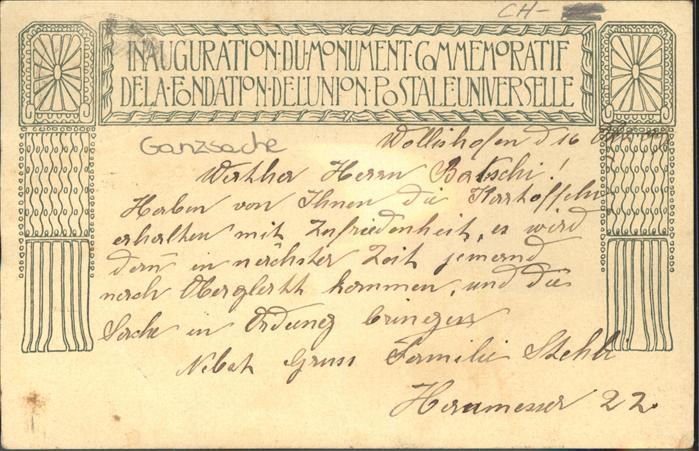 CH-
INAUGURATION·DU·MONUMENT·COMMEMORATIF
DE·LA·FONDATION·DE·L'UNION·POSTALE·UNIVERSELLE
Ganzsache
Wollishofen d 16
Werther Herrn !
Haben von Ihnen die Kartoffeln
erhalten mit Zufriedenheit, es wird
dann in nächster Zeit jemand
nach Oberglatt kommen, und die
Sache in Ordung bringen
Nebst Gruss Familie Stehli
22.